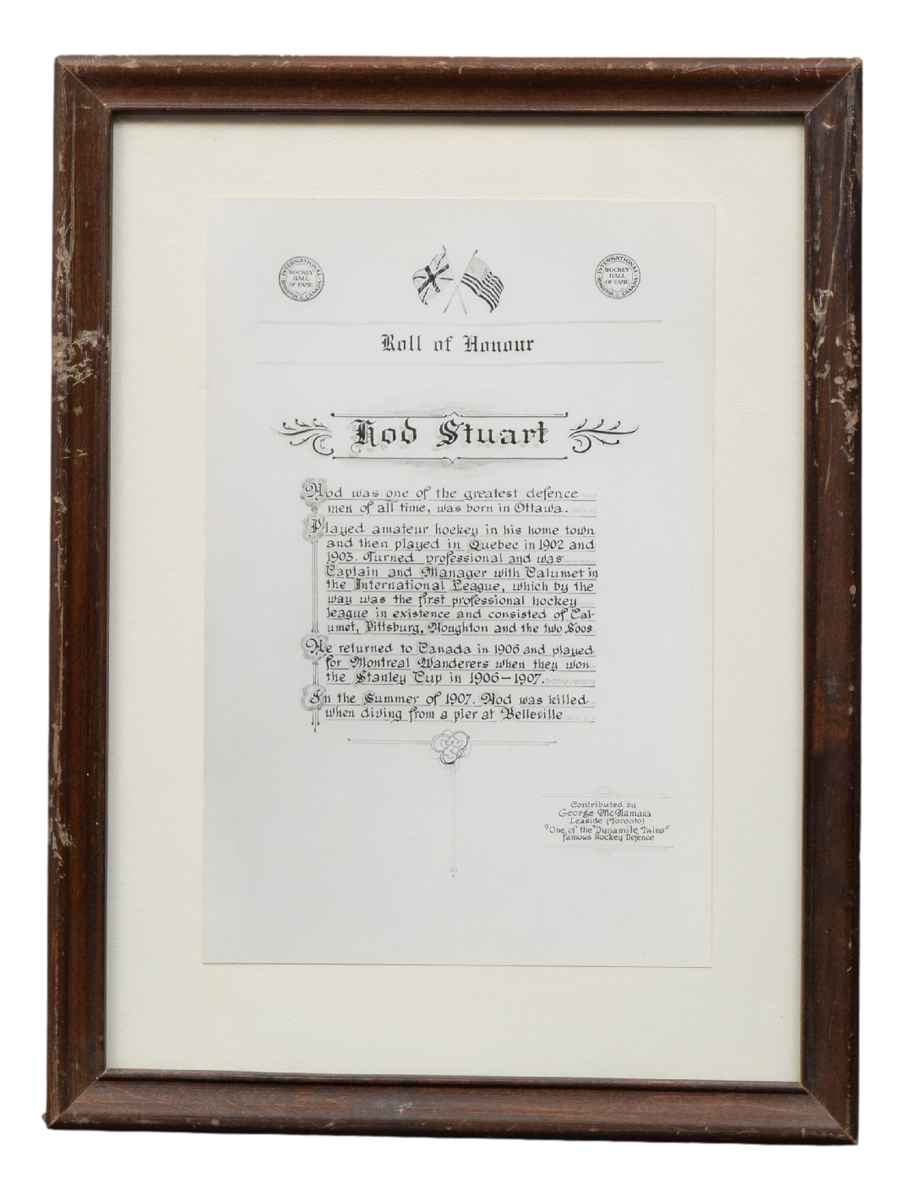 INTERNATIONAL
HOCKEY
HALL
OF FAME
KINGSTON CANADA
INTERNATIONAL
HOCKEY
HALL
OF FAME
KINGSTON CANADA
Roll of Honour
Hod Stuart
Hod was one of the greatest defence
men of all time, was born in Ottawa.
Played amateur hockey in his home town
and then played in Quebec in 1902 and
1903. Turned professional and was
Captain and Manager with Calumet in
the International League, which by the
way was the first professional hockey
league in existence and consisted of Cal-
umet, Pittsburg, Houghton and the two Soos
He returned to Canada in 1906 and played
for Montreal Wanderers when they won
the Stanley Cup in 1906-1907.
In the Summer of 1907. Hod was killed
when diving from a pier at Belleville
Contributed by
George McNamara
Leaside (Toronto)
"One of the "Dynamite Twins"
famous Hockey Defence